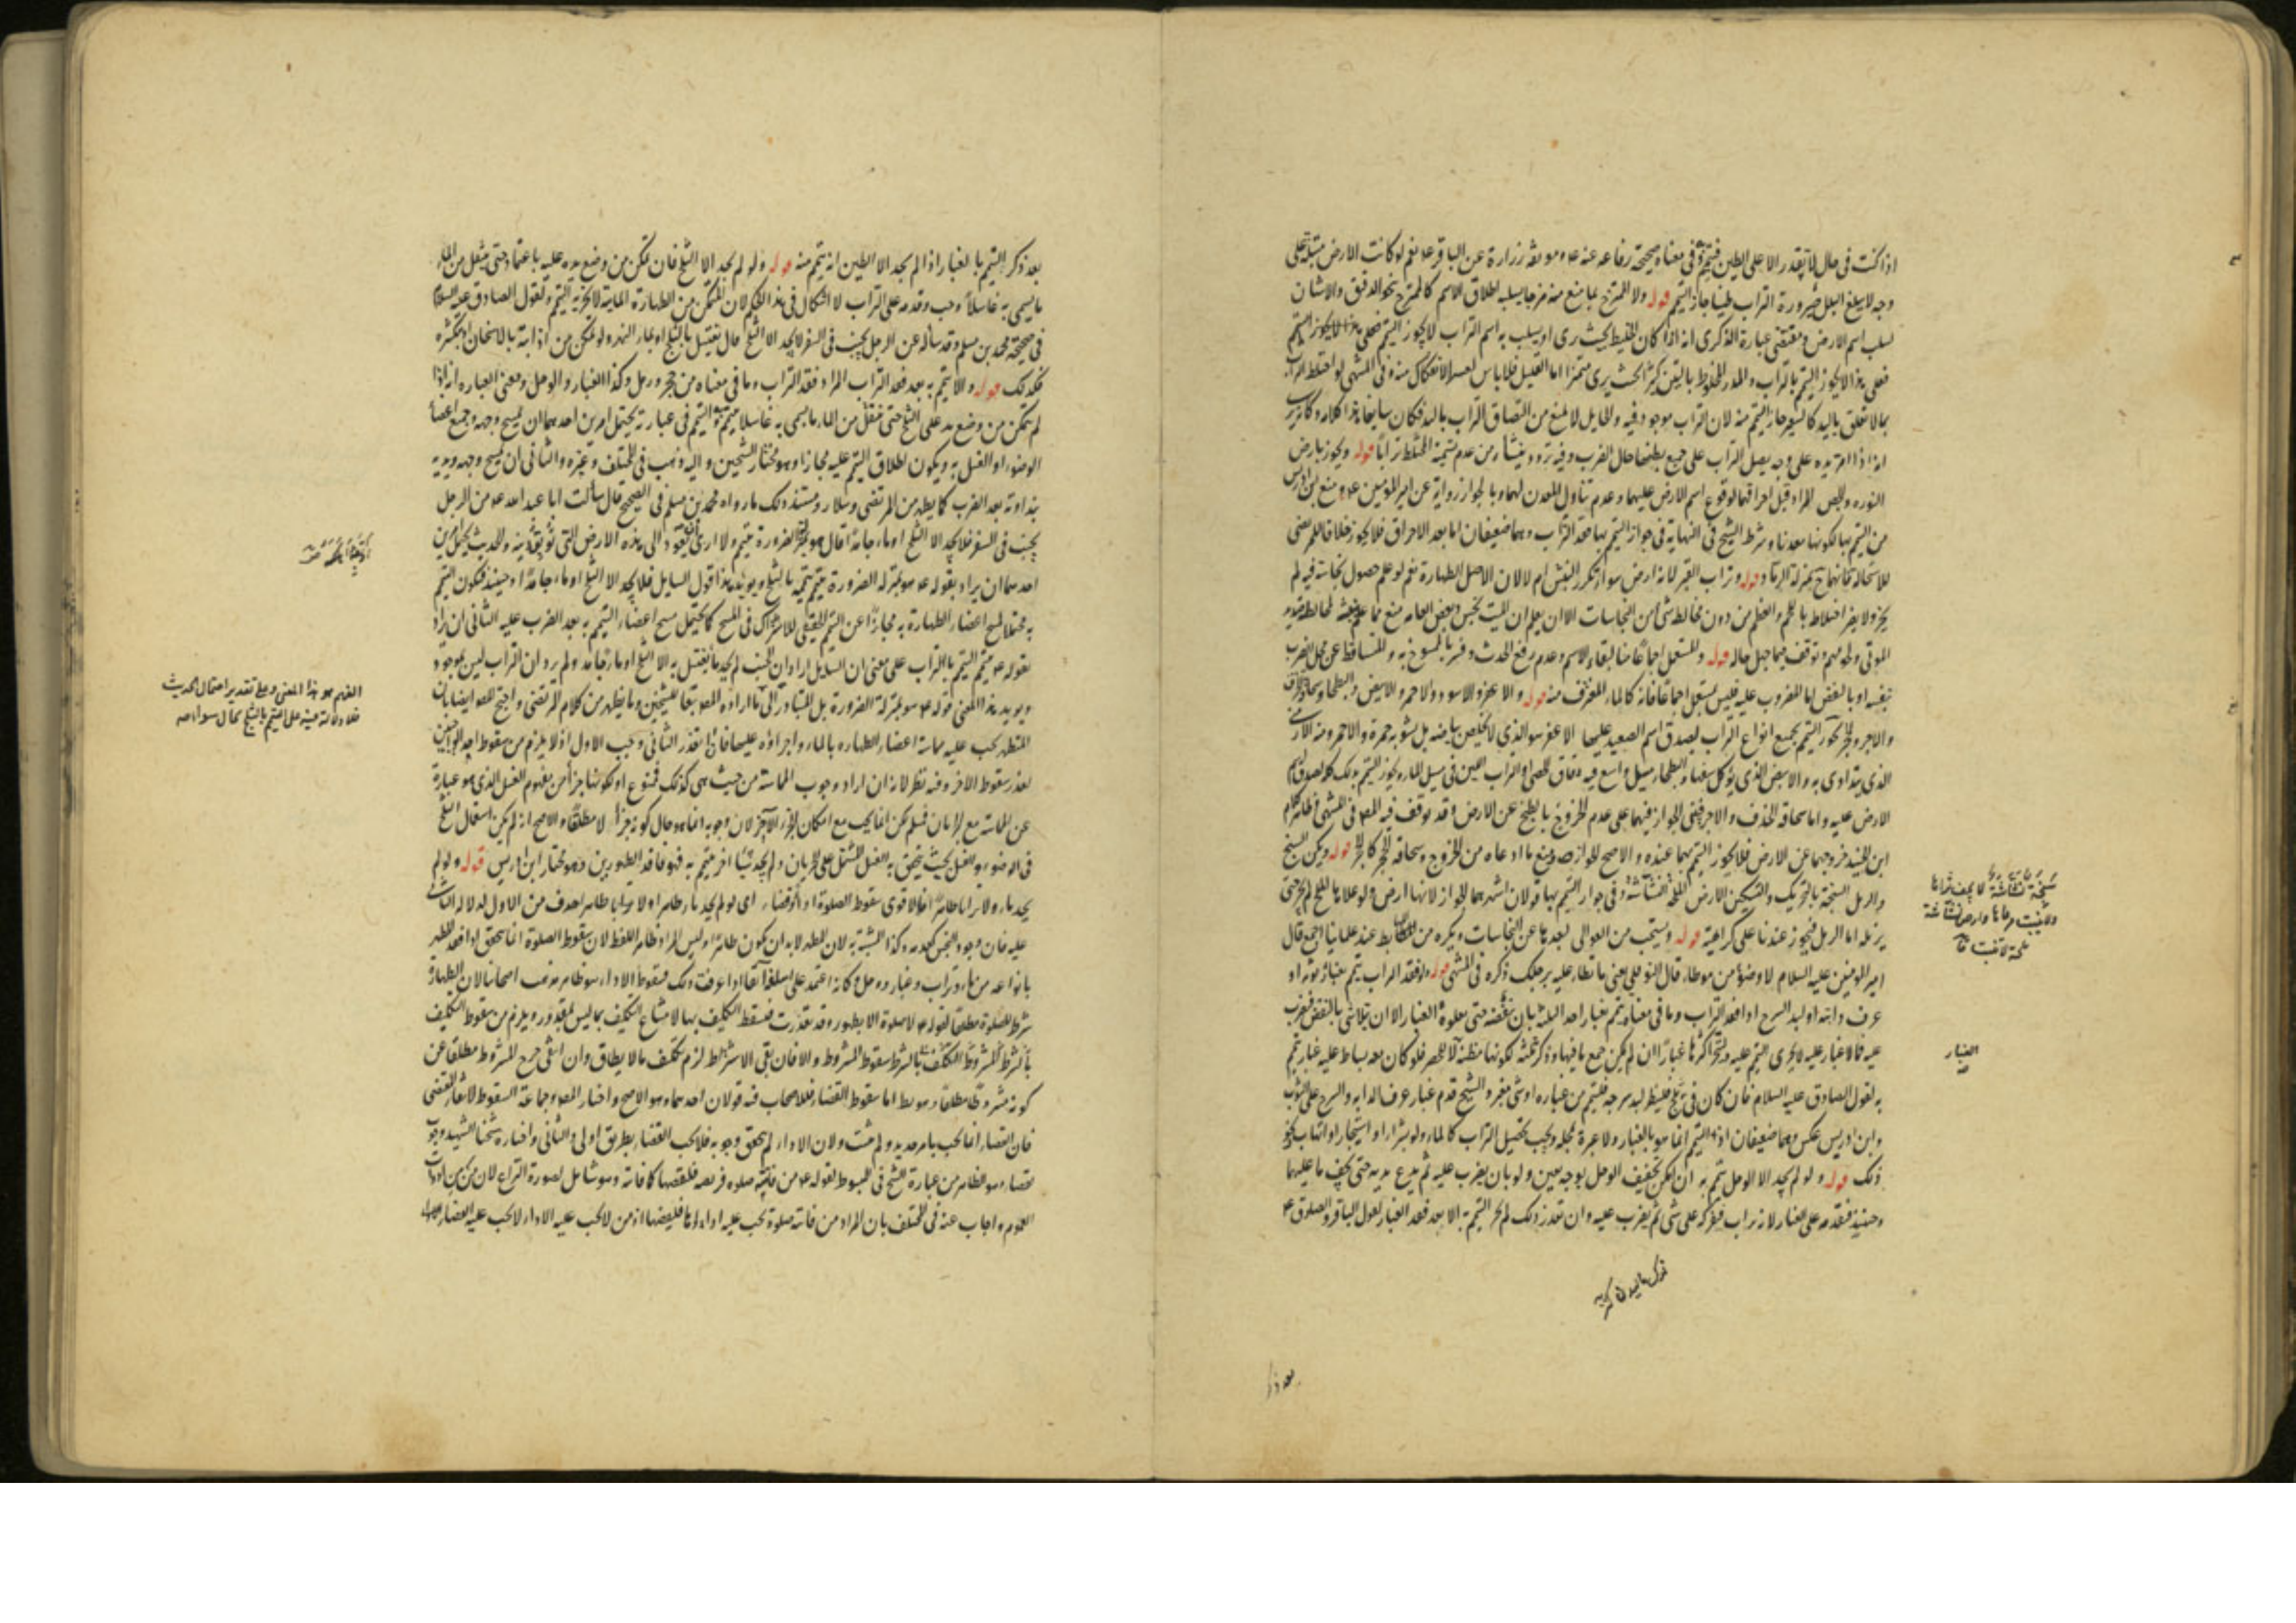 اذا كنت فى حال لا تقدر الا على الطين فتيمم به وفى معناه صحيحة رفاعه عنه ع وموثقة زرارة عن الباقر ع نعم لو كانت الارض مبتلة على
وجه لا يبلغ البلل ضرورة التراب طينا جاز التيمم قوله ولا الممتزج بما منع منه مزجا يسلبه اطلاق الاسم كالممتزج بنحو الدقيق والاشنان
لسلب اسم الارض ومقتضى عبارة الذكرى انه اذا كان الخليط بحيث يرى او يسلب به اسم التراب لا يجوز التيمم
فعلى هذا لا يجوز التيمم بالتراب والمدر المخلوط بالتبن كثيرا بحيث يرى متميزا اما القليل فلا باس لعسر الانفكاك منه وفى المنتهى لو اختلط التراب
بما لا تعلق باليد كالشعير جاز التيمم منه لان التراب موجود فيه والحايل لا يمنع من التصاق التراب باليد فكان سايغا هذا كلامه
انه اذا امر يده على وجه يصل التراب على جميع بطنها حال الضرب وفيه تردد ينشأ من عدم تسمية المختلط ترابا قوله ويجوز بارض
النوره والجص المراد قبل احراقهما لوقوع اسم الارض عليهما وعدم تناول المعدن لهما وبالجواز رواية عن امير المومنين ع ومنع ابن ادريس
من التيمم بها لكونها معدنا وشرط الشيخ فى النهاية فى جواز التيمم بها فقد التراب وهما ضعيفان اما بعد الاحراق فلا يجوز خلافا للمرتضى
للاستحالة فانهما بمنزلة الرماد قوله وتراب القبر لانه ارض سواء تكرر النبش ام لا لان الاصل الطهارة نعم لو علم حصول نجاسة فيه لم
يجز ولا يضر اختلاطه باللحم والعظم من دون مخالطة شئ من النجاسات الا ان يعلم ان الميت نجس وبعض العامه منع مما علم نبشه لمخالطة صديد
الموتى ولحومهم وتوقف فيما جهل حاله قوله والمستعمل اجماعا منا لبقاء الاسم وعدم رفع الحدث وفسر بالممسوح به والمتساقط عن محل الضرب
بنفسه او بالنفض اما المضروب عليه فليس بمستعمل اجماعا فانه كالماء المغترف منه قوله والاعفر والاسود والاحمر والابيض والبطحا وسحاقة الخزف
والاجر والحجر يجوز التيمم بجميع انواع التراب لصدق اسم الصعيد عليها الاعفر هو الذى لا يخلص بياضه بل تشوبه حمرة والاحمر ومنه الارمنى
الذى يتداوى به والابيض الذى يؤكل سفها والبطحاء مسيل واسع فيه دقاق الحصى او التراب اللين فى مسيل الماء ويجوز التيمم بذلك كله لصدق اسم
الارض عليه واما سحاقة الخذف والاجر فبنى الجواز فيهما على عدم الخروج بالطبخ عن الارض وقد توقف فيه المص فى المنتهى
ابن الجنيد خروجهما عن الارض فلا يجوز التيمم بهما عنده والاصح الجواز ومنع ما ادعاه من الخروج وسحاقة الحجر كالحجر قوله ويكره السبخ
والرمل السبخة بالتحريك والتسكين الارض المالحة النشاشة وفى جواز التيمم بها قولان اشهرهما الجواز لانها ارض ولو علاها الملح لم يجز حتى
يزيله اما الرمل فيجوز عندنا على كراهية قوله ويستحب من العوالى لبعدها عن النجاسات ويكره من المهابط عند علمائنا اجمع قال
امير المومنين عليه السلام لا وضوء من موطاء قال النوفلى يعنى ما تطاء عليه برجلك ذكره فى المنتهى قوله ولو فقد التراب يتمم بغبار ثوبه او
عرف دابته او لبد السرج اذا فقد التراب وما فى معناه يتمم بغبار احد الثلثة بان ينفضه حتى يعلوه الغبار الا ان يتلاشى بالنفض فيضرب
عليه فما لا غبار عليه لا يجزى التيمم عليه ويتحرى اكثرها غبارا ان لم يمكن جمع ما فيها وذكر الثلثة لكونها مظنة لا للحصر فلو كان معه بساط عليه غبار تيمم
به لقول الصادق عليه السلام فان كان فى ثلج فلينظر لبد سرجه فليتيمم من غباره او شئ مغبر والشيخ قدم غبار عرف الدابه والسرج على الثوب
وابن ادريس عكس وهما ضعيفان اذ التيمم انما هو بالغبار ولا عبرة بمحله ويجب تحصيل التراب كالماء ولو بشراء او استيجار او اتهاب كنحو
ذلك قوله ولو لم يجد الا الوحل يتمم به ان لم يكن تجفيف الوحل بوجه يعين ولو بان يضرب عليه ثم يدع يديه حتى يجف ما عليهما
وحينئذ فيقدم على الغبار لانه تراب فيفركه على شئ ثم يضرب عليه وان تعذر ذلك لم يجز التيمم به الا بعد فقد الغبار لقول الباقر والصادق ع
سبخة نشاشة لا يجف ثراها
ولا ينبت مرعاها وارض نشاشة
ملحة لا تنبت
الغبار
بعد ذكر
بعد ذكر التيمم بالغبار اذا لم يجد الا الطين انه يتيمم منه قوله ولو لم يجد الا الثلج فان تمكن من وضع يده عليه باعتماد حتى ينتقل من الماء
ما يسمى به غاسلا وجب وقدمه على التراب لا اشكال فى هذا الحكم لان المتمكن من الطهارة المائية لا يجزيه التيمم ولقول الصادق عليه السلام
فى صحيحة محمد بن مسلم وقد سأله عن الرجل يجنب فى السفر لا يجد الا الثلج قال يغتسل بالثلج او بماء النهر ولو تمكن من اذابته بالاسخان او بكثره
فكذلك قوله والا يتيمم به بعد فقد التراب المراد فقد التراب وما فى معناه من حجر ورمل وكذا الغبار والوحل ومعنى العباره انه اذا
لم يتمكن من وضع يده على الثلج حتى ينتقل من الماء ما يسمى به غاسلا تيمم به والتيمم فى عبارته يحتمل امرين احدهما ان يمسح وجهه وجميع اعضاء
الوضوء او الغسل به ويكون اطلاق التيمم عليه مجازا وهو مختار الشيخين واليه ذهب فى المختلف وغيره والثانى ان يمسح وجهه ويديه
بنداوته بعد الضرب كما يظهر من المرتضى وسلار ومستند ذلك ما رواه محمد بن مسلم فى الصحيح قال سألت ابا عبد الله ع عن الرجل
يجنب فى السفر فلا يجد الا الثلج او ماء جامدا قال هو بمنزلة الضرورة يتيمم ولا ارى ان يعود الى هذه الارض التى توبق دينه والحديث يحتمل امرين
احدهما ان يراد بقوله ع هو بمنزلة الضرورة يتيمم تيممه بالثلج ويؤيده هذا قول السايل فلا يجد الا الثلج او ماء جامدا وحينئذ فيكون التيمم
به محتملا لمسح اعضاء الطهارة به مجازا عن التيمم الحقيقى للاشتراك فى المسح كما يحتمل مسح اعضاء التيمم به بعد الضرب عليه الثانى ان يراد
بقوله ع يتيمم التيمم بالتراب على معنى ان السايل اراد ان الجنب لم يجد ما يغتسل به الا الثلج او ماء جامدا ولم يرد ان التراب ليس بموجود
ويؤيد هذا المعنى قوله ع هو بمنزلة الضرورة بل المتبادر الى ما اراده المص تبعا للشيخين وما يظهر من كلام المرتضى واحتج المص ايضا بان
المتطهر يجب عليه مماسة اعضاء الطهاره بالماء واجراؤه عليها فان تعذر الثانى وجب الاول اذ لا يلزم من سقوط احد الواجبين
لعذر سقوط الاخر وفيه نظر لانه ان اراد وجوب المماسة من حيث هى كذلك فممنوع او لكونها جزا من مفهوم الغسل الذى هو عبارة
عن المماسة مع الجريان فمسلم لكن انما يجب مع امكان الجزء الاخر لان وجوبه انما هو حال كونه جزا لا مطلقا والاصح انه لم يكن استعمال الثلج
فى الوضوء والغسل بحيث يتحقق به الغسل المشتمل على الجريان ولم يجد شيئا اخر يتيمم به فهو فاقد الطهورين وهو مختار ابن ادريس قوله ولو لم
يجد ماء ولا ترابا طاهرا فالاقوى سقوط الصلوة اداء وقضاء اى لو لم يجد ماء طاهرا ولا ترابا طاهرا حذف من الاول لدلالة الثانى
عليه فان وجود النجس كعدمه وكذا المشتبه به لان المطهر لا بد ان يكون طاهرا وليس المراد ظاهر اللفظ لان سقوط الصلوة انما يتحقق اذا فقد المطهر
بانواعه من ماء وتراب وغبار ووحل وكانه اعتمد على ما سلف انفا اذا عرفت ذلك فسقوط الاداء هو ظاهر مذهب اصحابنا لان الطهارة
شرط للصلوة مطلقا لقوله ع لا صلوة الا بطهور وقد تعذرت فيسقط التكليف بها لامتناع التكليف بما ليس بمقدور ويلزم من سقوط التكليف
بالشرط للمشروط التكليف بالشرط سقوط المشروط والا فان بقى الاشتراط لزم تكليف ما لا يطاق وان انتفى خرج المشروط مطلقا عن
كونه مشروطا مطلقا وهو بط اما سقوط القضاء فللاصحاب فيه قولان احدهما وهو الاصح واختاره المص وجماعة السقوط لانتفاء المقتضى
فان القضاء انما يجب بامر جديد ولم يثبت ولان الاداء لم يتحقق وجوبه فلا يجب القضاء بطريق اولى والثانى واختاره شيخنا الشهيد وجوب
القضاء وهو الظاهر من عبارة الشيخ فى المبسوط لقوله ع من فاتته صلوه فريضه فليقضها كما فاتته وهو شامل لصورة النزاع لان من
للعموم واجاب عنه فى المختلف بان المراد من فاتته صلوة يجب عليه اداؤها فليقضها اذ من لا يجب عليه الاداء لا يجب عليه القضاء
الفهم هو هذا المعنى وعلى تقدير احتمال الحديث
فلا دلالة فيه على التيمم بالثلج بحال سواء